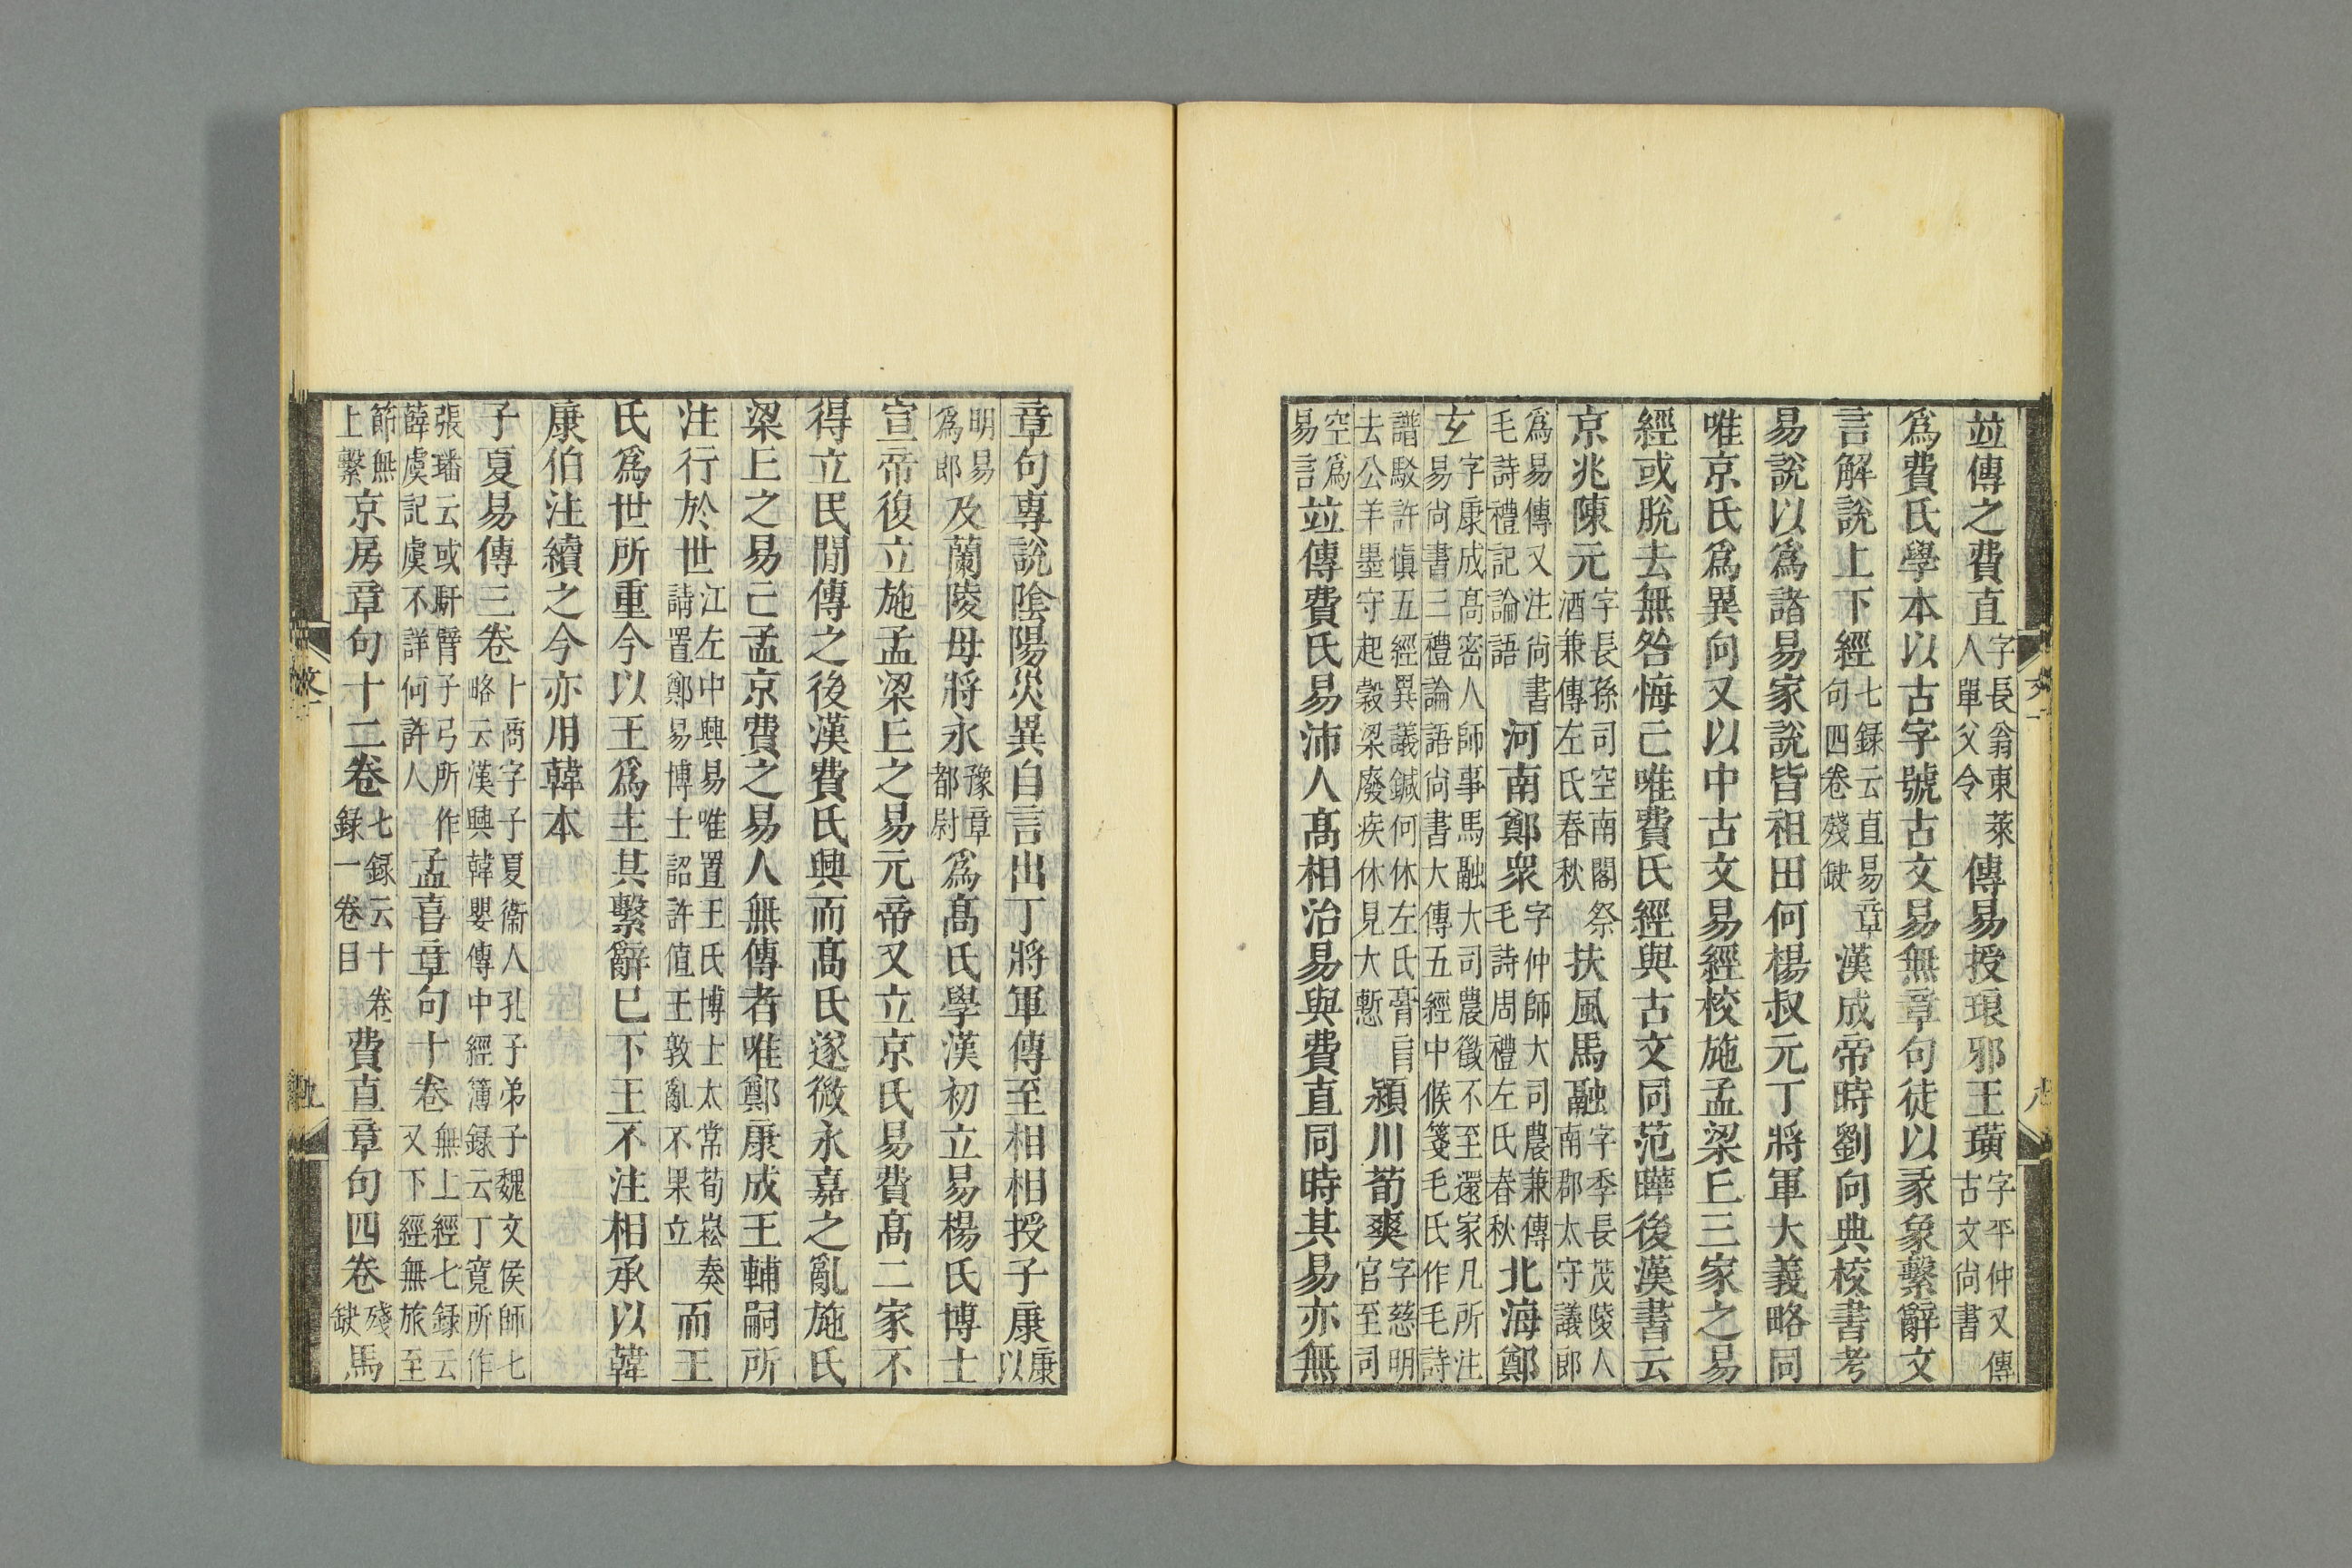 竝傳之費直字長翁東萊人單父令傳易授琅邪王璜字平仲又傳古文尚書
爲費氏學本以古字號古文易無章句徒以彖象繫辭文
言解說上下經七錄云直易章句四卷殘缺漢成帝時劉向典校書考
易說以爲諸易家說皆祖田何楊叔元丁將軍大義略同
唯京氏爲異向又以中古文易經校施孟梁丘三家之易
經或脫去無咎悔亡唯費氏經與古文同范曄後漢書云
京兆陳元字長孫司空南閣祭酒兼傳左氏春秋扶風馬融字季長茂陵人南郡太守議郎
爲易傳又注尚書毛詩禮記論語河南鄭衆字仲師大司農兼傳毛詩周禮左氏春秋北海鄭
玄字康成髙密人師事馬融大司農徵不至還家凡所注易尚書三禮論語尚書大傳五經中候箋毛氏作毛詩
譜駁許愼五經異義鍼何休左氏膏肓去公羊墨守起穀梁廢疾休見大慙潁川荀爽字慈明官至司
空爲易言竝傳費氏易沛人髙相治易與費直同時其易亦無
章句專說陰陽災異自言出丁將軍傳至相相授子康康以
明易爲郎及蘭陵毋將永豫章都尉爲髙氏學漢初立易楊氏博士
宣帝復立施孟梁丘之易元帝又立京氏易費髙二家不
得立民閒傳之後漢費氏興而髙氏遂微永嘉之亂施氏
梁丘之易亡孟京費之易人無傳者唯鄭康成王輔嗣所
注行於世江左中興易唯置王氏博士太常荀崧奏請置鄭易博士詔許値王敦亂不果立而王
氏爲世所重今以王爲主其繫辭已下王不注相承以韓
康伯注續之今亦用韓本
子夏易傳三卷卜商字子夏衞人孔子弟子魏文侯師七略云漢興韓嬰傳中經簿錄云丁寬所作
張璠云或馯臂子弓所作薛虞記虞不詳何許人孟喜章句十卷無上經七錄云又下經無旅至
節無上繫京房章句十二卷七錄云十卷錄一卷目費直章句四卷殘缺馬